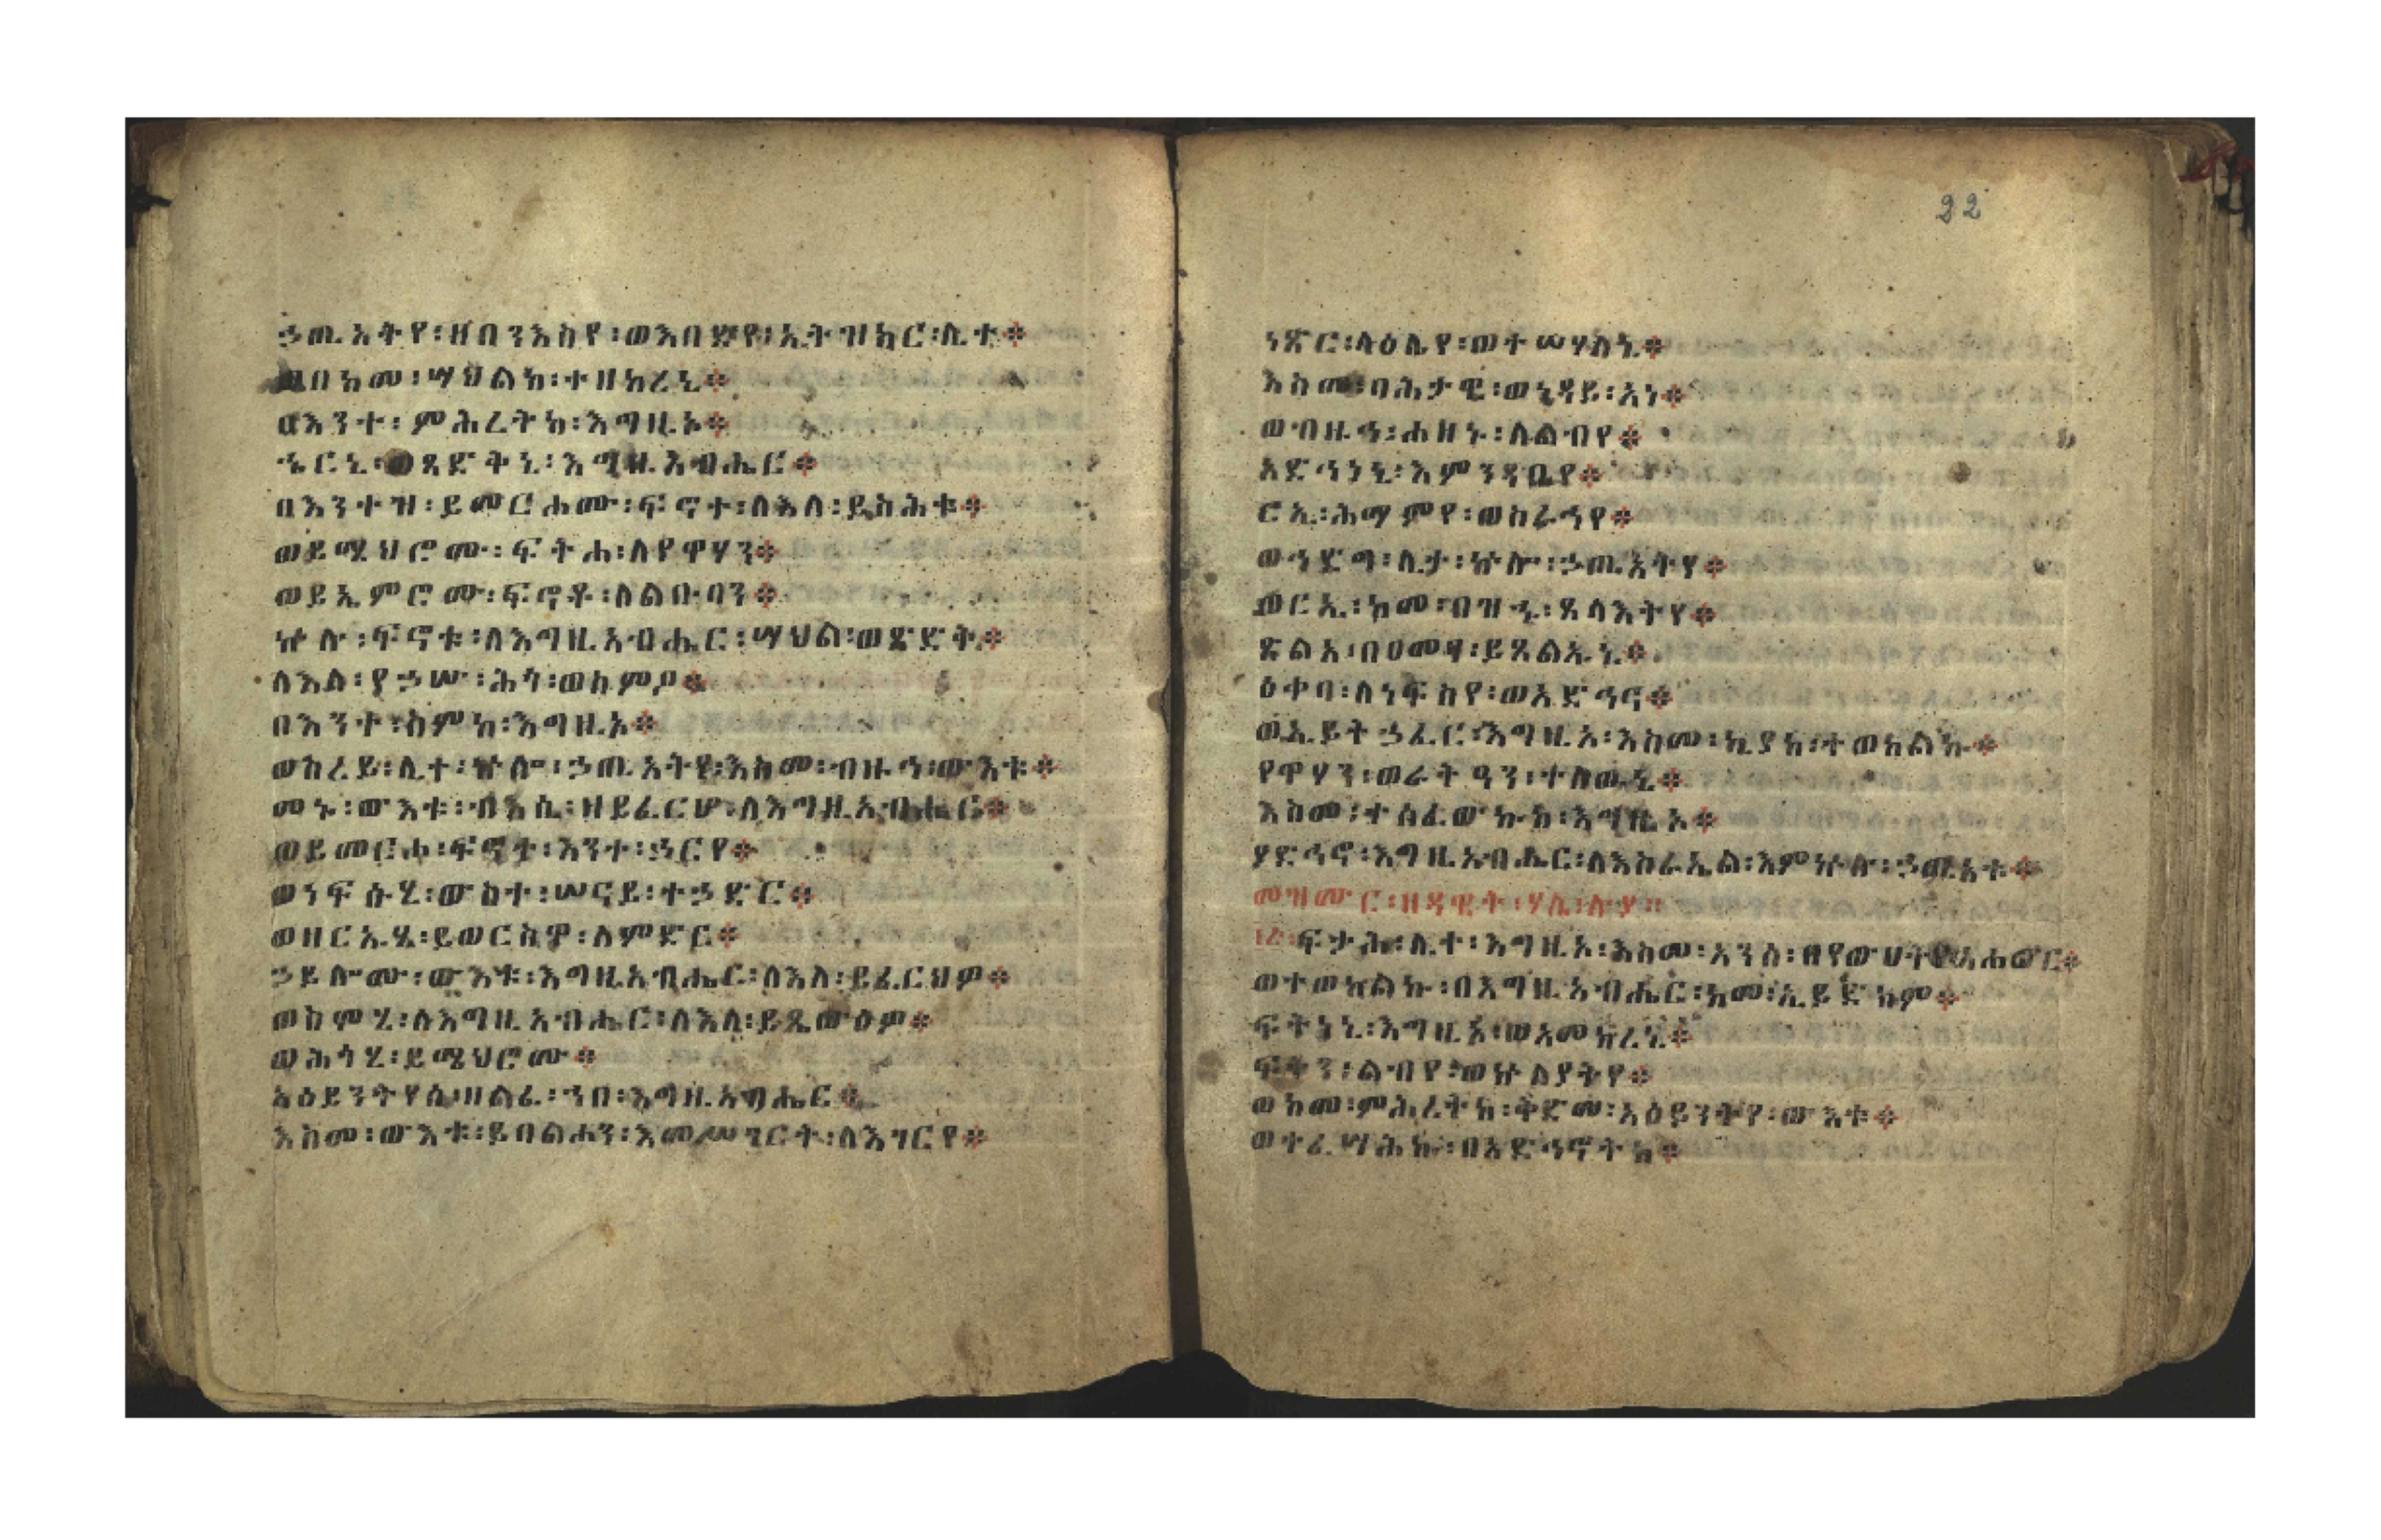 ኃጢአትየ፡ዘበንእስየ፡ወእበድየ፡ኢትዝክር፡ሊተ።
ወበከመ፡ሣህልከ፡ተዘከረኒ።
በእንተ፡ምሕረትከ፡እግዚኦ።
ኄርኒ፡ወጻድቅኒ፡እግዚአብሔር።
በእንተዝ፡ይመርሖሙ፡ፍኖተ፡ለእለ፡ይስሕቱ።
ወይሜህሮሙ፡ፍትሐ፡ለየዋሃን።
ወይኤምሮሙ፡ፍኖቶ፡ለልቡባን።
ኵሉ፡ፍኖቱ፡ለእግዚአብሔር፡ሣህል፡ወጽድቅ።
ለእለ፡የኃሡ፡ሕጎ፡ወስምዖ።
በእንተ፡ስምከ፡እግዚኦ።
ወስረይ፡ሊተ፡ኵሎ፡ኃጢአትየ፡እስመ፡ብዙኅ፡ውእቱ።
መኑ፡ውእቱ፡ብእሲ፡ዘይፈርሆ፡ለእግዚአብሔር።
ወይመርሖ፡ፍኖተ፡እንተ፡ኃርየ።
ወነፍሱሂ፡ውስተ፡ሠናይ፡ተኃድር።
ወዘርኡሂ፡ይወርስዋ፡ለምድር።
ኃይሎሙ፡ውእቱ፡እግዚአብሔር፡ለእለ፡ይፈርህዎ።
ወስሞሂ፡ለእግዚአብሔር፡ለእለ፡ይጼውዕዎ።
ወሕጎሂ፡ይሜህሮሙ።
አዕይንትየሰ፡ዘልፈ፡ኀበ፡እግዚአብሔር።
እስመ፡ውእቱ፡ይባልሖን፡እመሥገርት፡ለእገርየ።
ነጽር፡ላዕሌየ፡ወተሠሃለኒ።
እስመ፡ባሕታዊ፡ወነዳይ፡አነ።
ወብዙኅ፡ሐዘኑ፡ለልብየ።
አድኅነኒ፡እምንዳቤየ።
ርኢ፡ሕማምየ፡ወስራኅየ።
ወኅድግ፡ሊተ፡ኵሎ፡ኃጢአትየ።
ወርኢ፡ከመ፡በዝኁ፡ጸላእትየ።
ጽልአ፡በዐመፃ፡ይጸልኡኒ።
ዕቀባ፡ለነፍስየ፡ወአድኅና።
ወኢይትኃፈር፡እግዚኦ፡እስመ፡ኪያከ፡ተወከልኩ።
የዋሃን፡ወራትዓን፡ተለዉኒ።
እስመ፡ተሰፈውኩከ፡እግዚኦ።
ያድኅኖ፡እግዚአብሔር፡ለእስራኤል፡እምኵሉ፡ኃጢአቱ።
መዝሙር፡ዘዳዊት፡ሃሌ፡ሉያ።
ፍታሕ፡ሊተ፡እግዚኦ፡እስመ፡አንሰ፡በየውሀትየ፡አሐውር።
ወተወከልኩ፡በእግዚአብሔር፡ከመ፡ኢይድክም።
ፍትነኒ፡እግዚኦ፡ወአመክረኒ።
ፍቅን፡ልብየ፡ወኵልያትየ።
ወከመ፡ምሕረትከ፡ቅድመ፡አዕይንትየ፡ውእቱ።
ወተፈሣሕኩ፡በአድኅኖትከ።